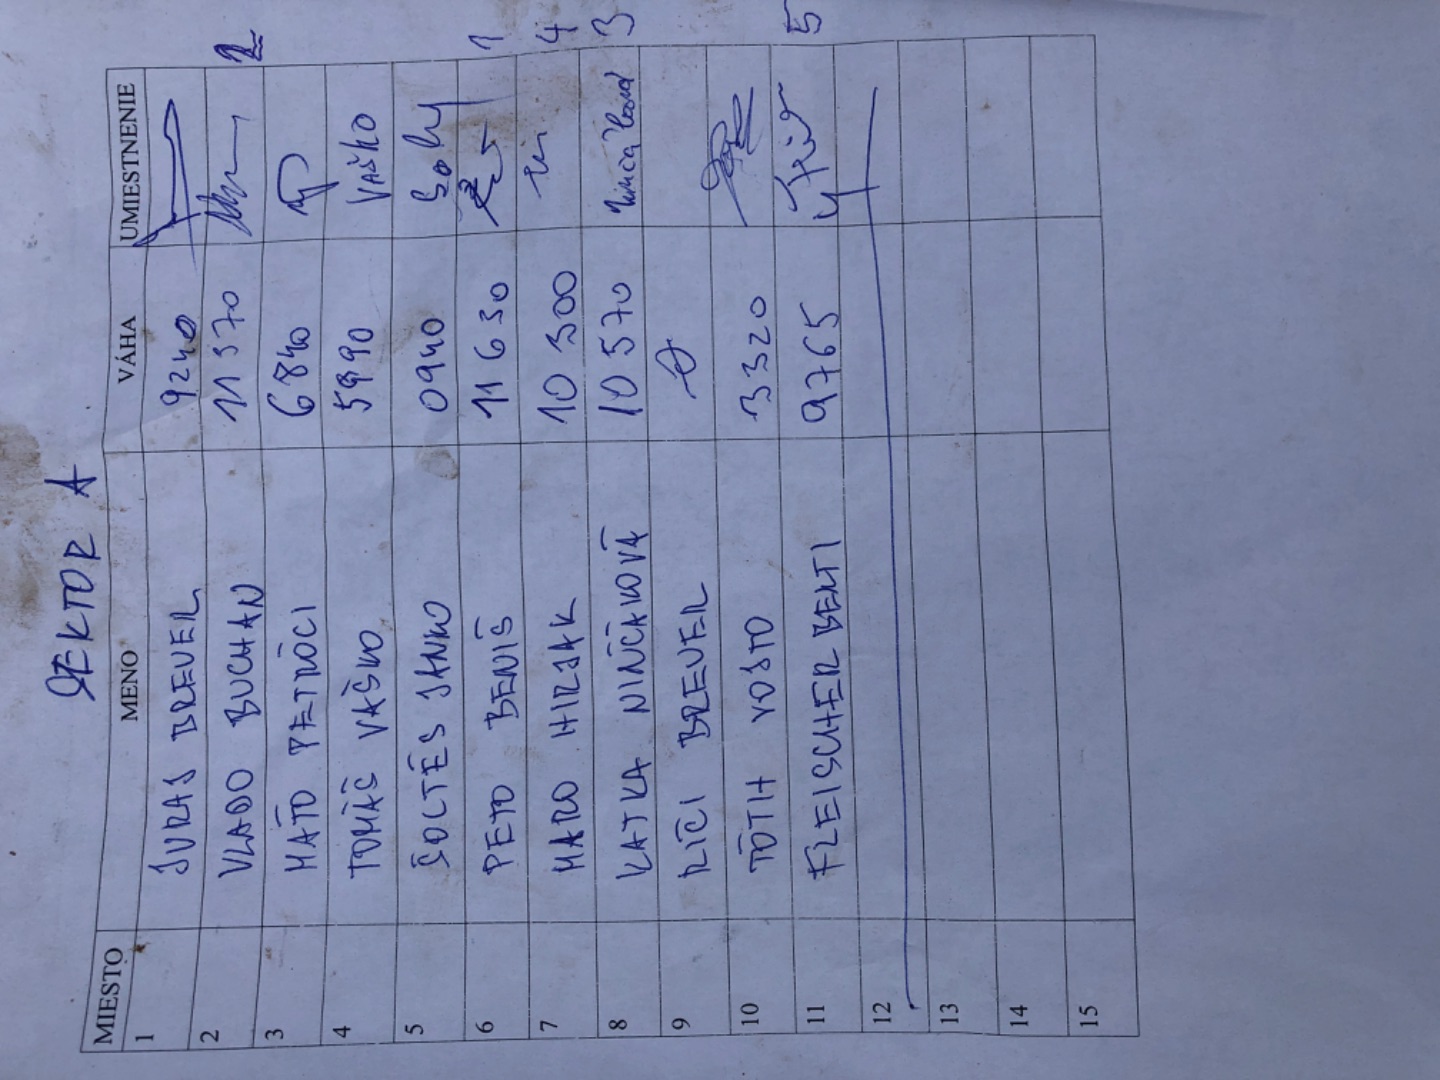 SEKTOR A
MIESTO MENO VÁHA UMIESTNENIE
1 JURAJ BREUER 9240
2 VLADO BUCHAN 11 370 2
3 MAŤO PETRÓCI 6840
4 TOMÁŠ VAŠKO 5990 VAŠKO
5 ŠOLTÉS JANKO 0940
6 PEŤO BENIŠ 11 630 1
7 MARO HIRJAK 10 300 4
8 KATKA NINČÁKOVÁ 10 570 3
9 RIČI BREUER
10 TÓTH 3320
11 FLEISCHER BERTI 9765 5
12
13
14
15